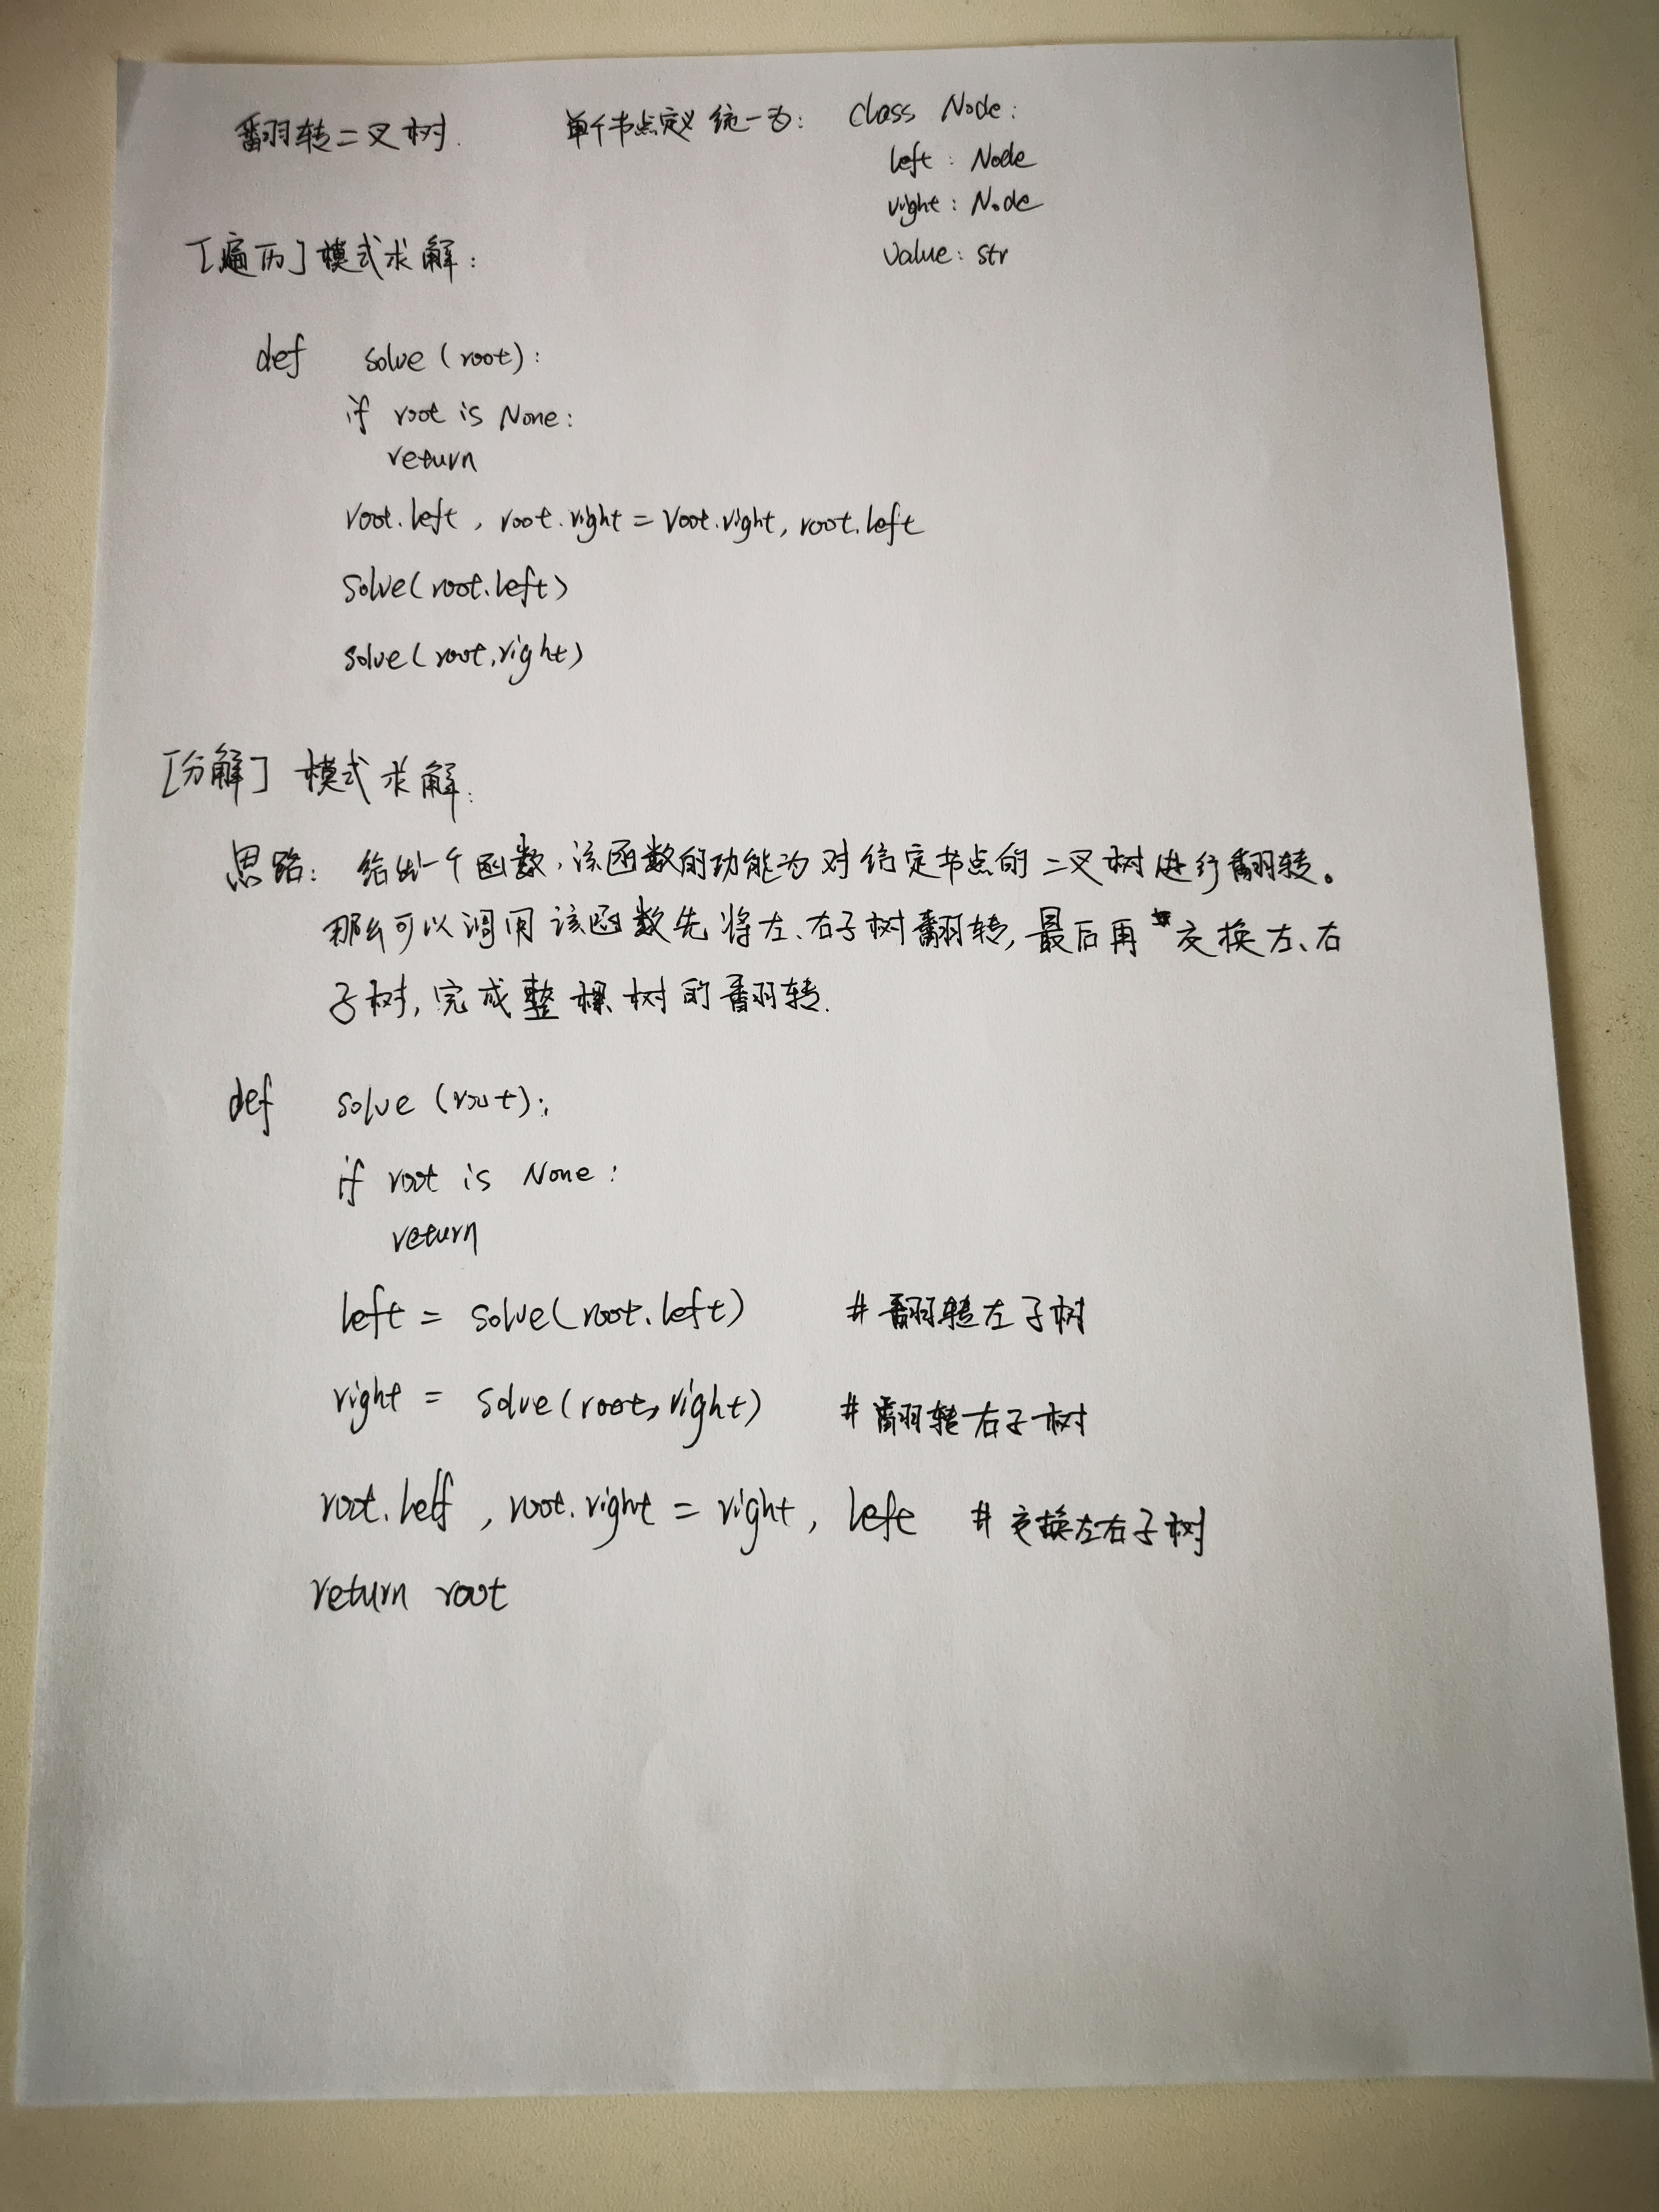 翻转二叉树. 单个节点定义统一为: class Node:
left: Node
right: Node
value: str
[遍历]模式求解:
def solve(root):
if root is None:
return
root.left, root.right = root.right, root.left
solve(root.left)
solve(root.right)
[分解]模式求解:
思路: 给出一个函数,该函数的功能为对给定节点的二叉树进行翻转。
那么可以调用该函数先将左、右子树翻转,最后再交换左、右
子树,完成整棵树的翻转.
def solve(root):
if root is None:
return
left = solve(root.left) #翻转左子树
right = solve(root.right) #翻转右子树
root.left, root.right = right, left #交换左右子树
return root